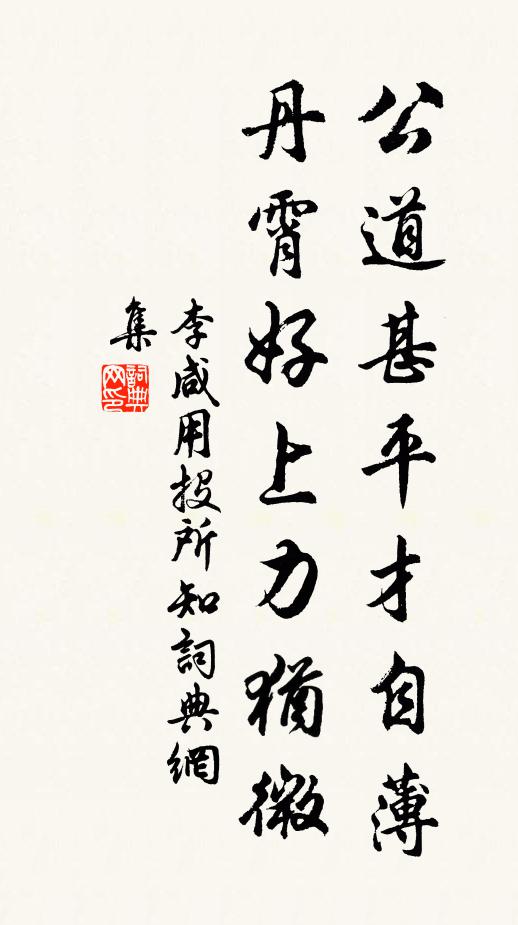 公道甚平才自薄
丹霄好上力猶微
李咸用投所知詞典網
集
詞典
网印